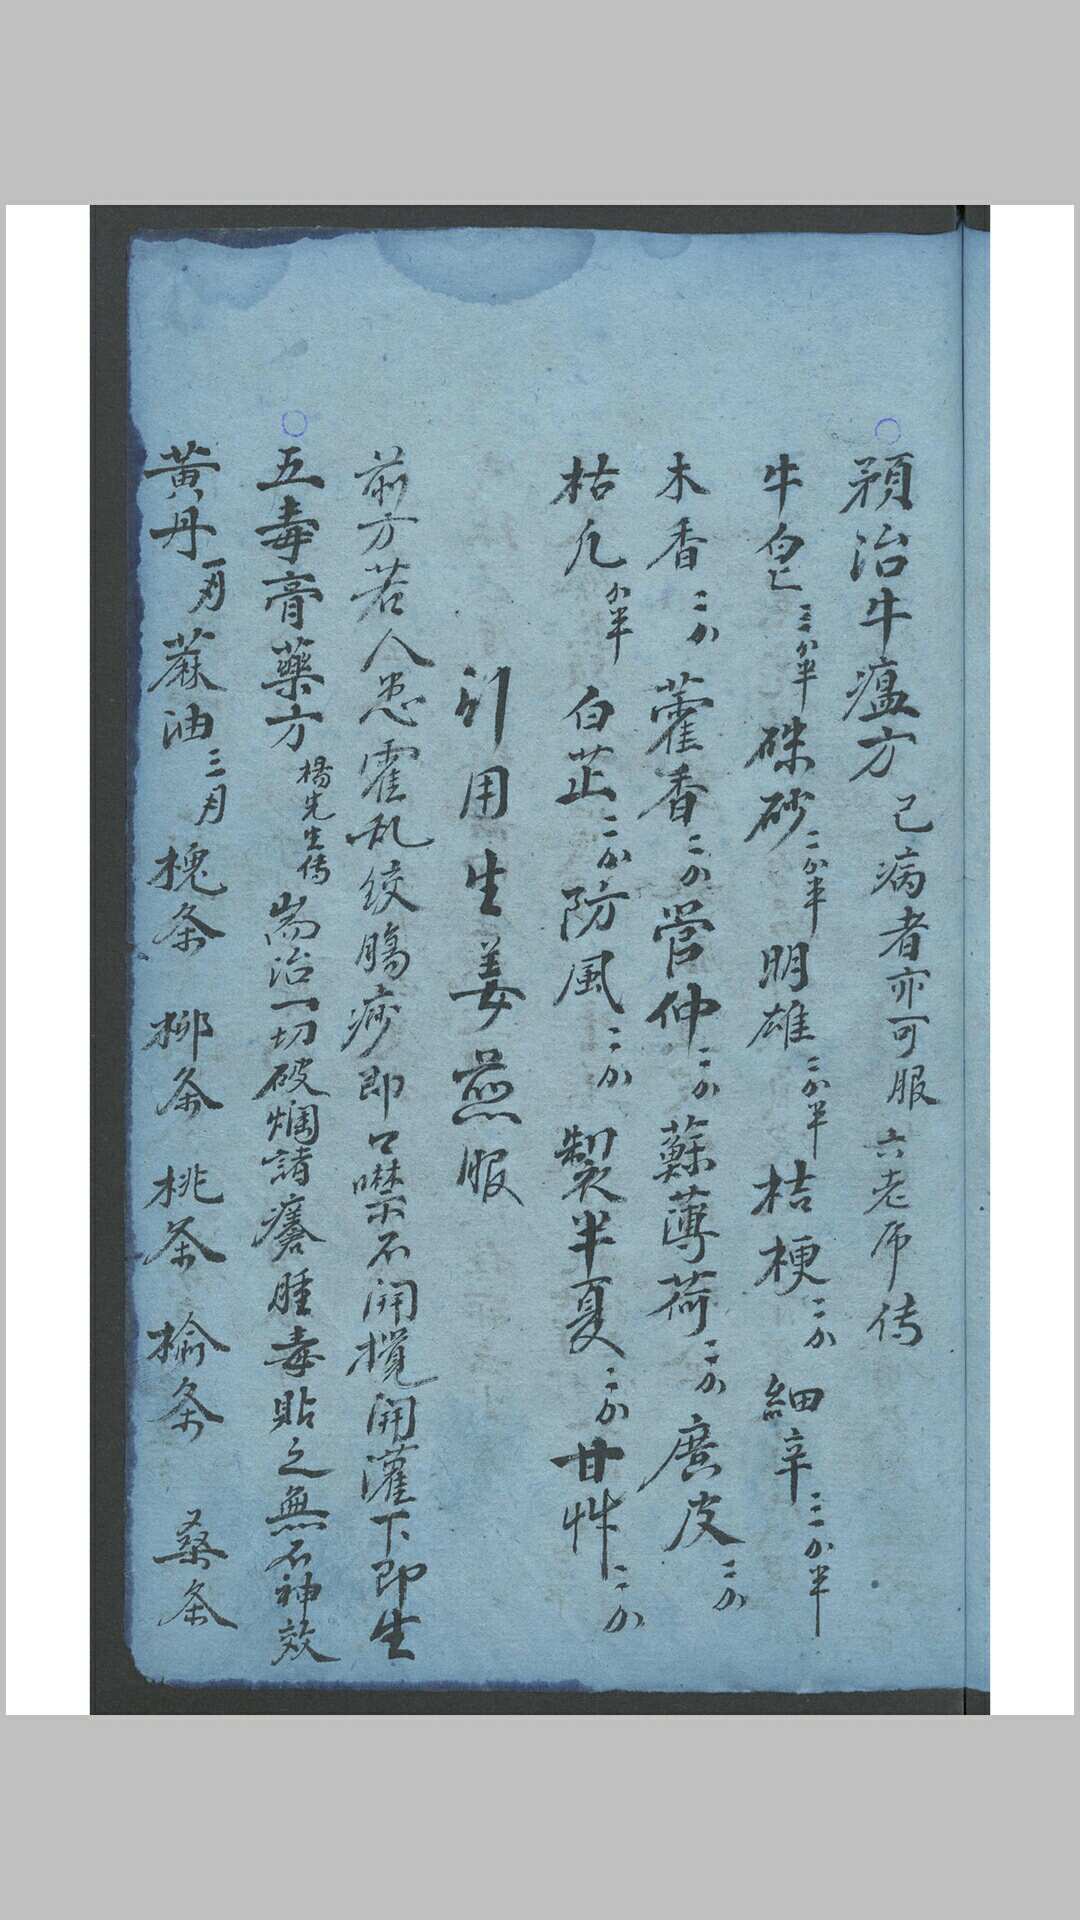 預治牛瘟方 已病者亦可服 六老师传
牛皂三分半 硃砂二分半 明雄二分半 桔梗二分 細辛三分半
木香二分 藿香二分 管仲二分 蘇薄荷二分 廣皮二分
枯凡分半 白芷二分 防風二分 製半夏二分 甘艸二分
引用生姜煎服
前方若人患霍乱绞腸痧即口噤不開撬開灌下即生
五毒膏藥方 楊先生傳 耑治一切破爛諸瘡腫毒貼之無不神效
黃丹 蔴油 槐条 柳条 桃条 榆条 桑条